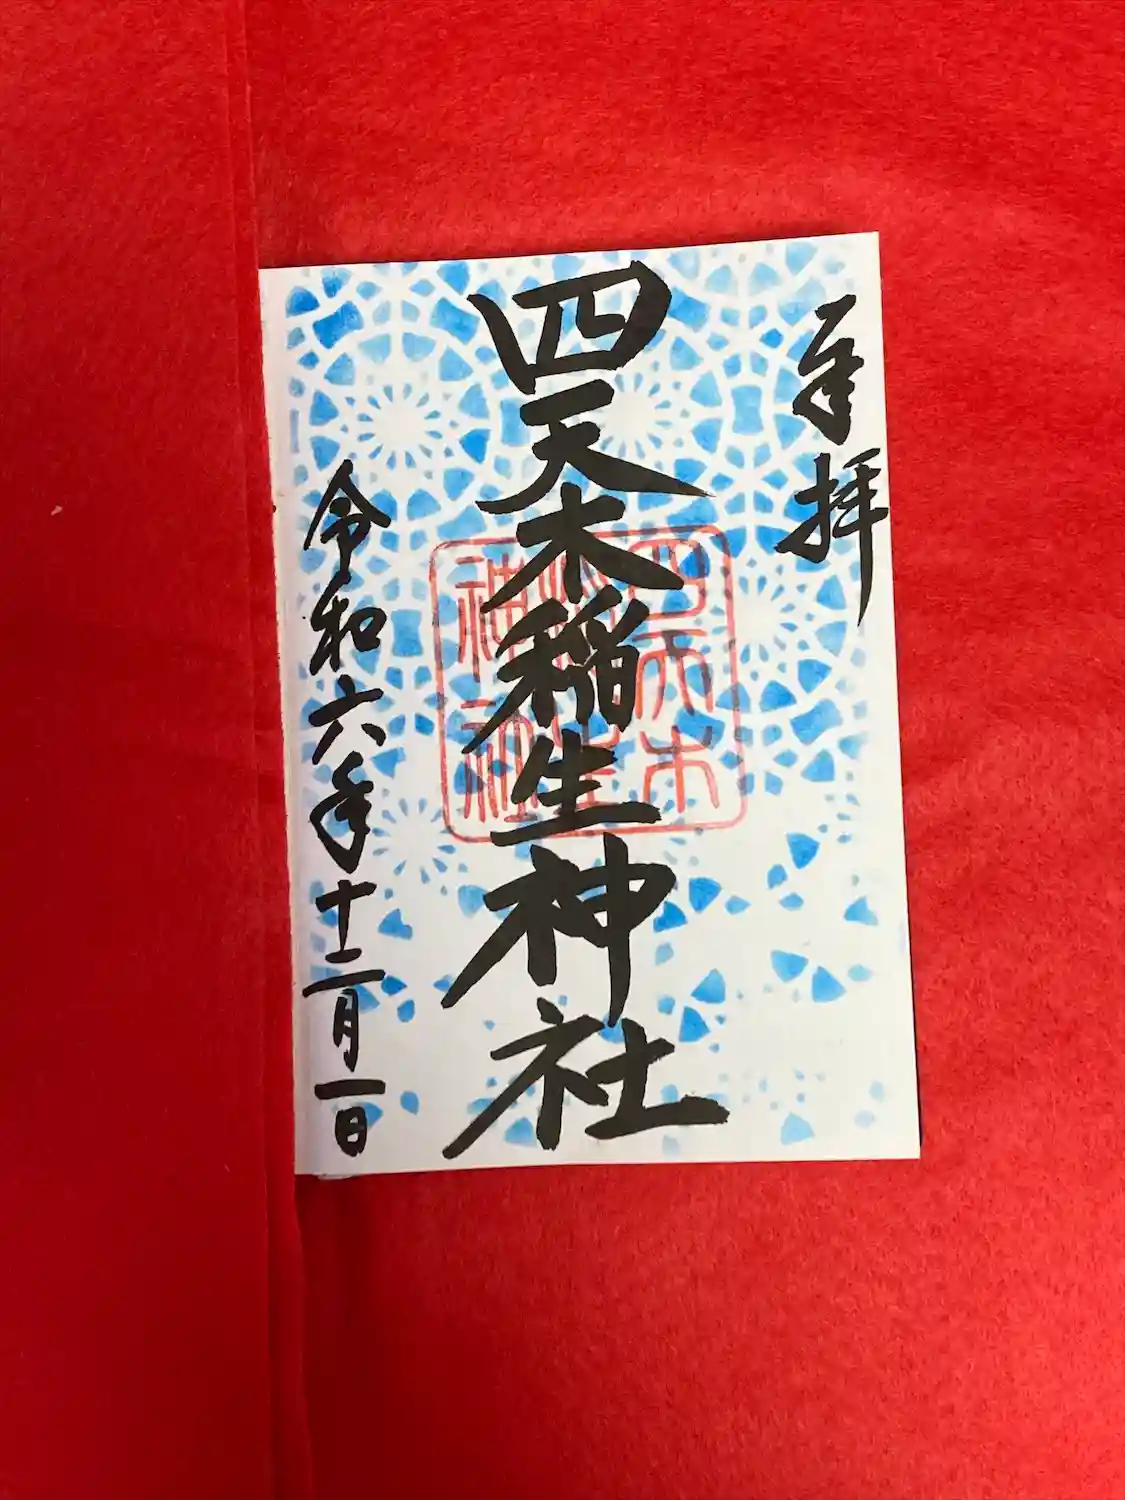 奉拝
四天木稲生神社
四天木
稲生
神社
令和六年十二月一日